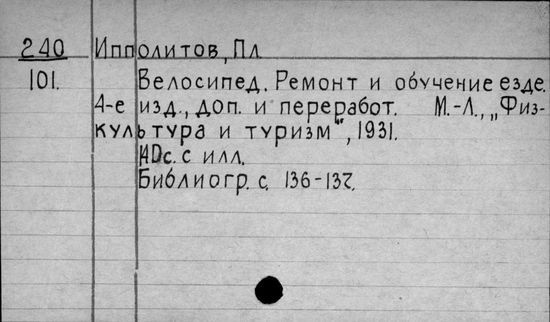 240 Ипполитов, Пл.
101. Велосипед. Ремонт и обучение езде.
4-е изд., доп. и переработ. М.-Л., „Физ-
культура и туризм", 1931.
с. с илл.
Библиогр. с. 136-137.